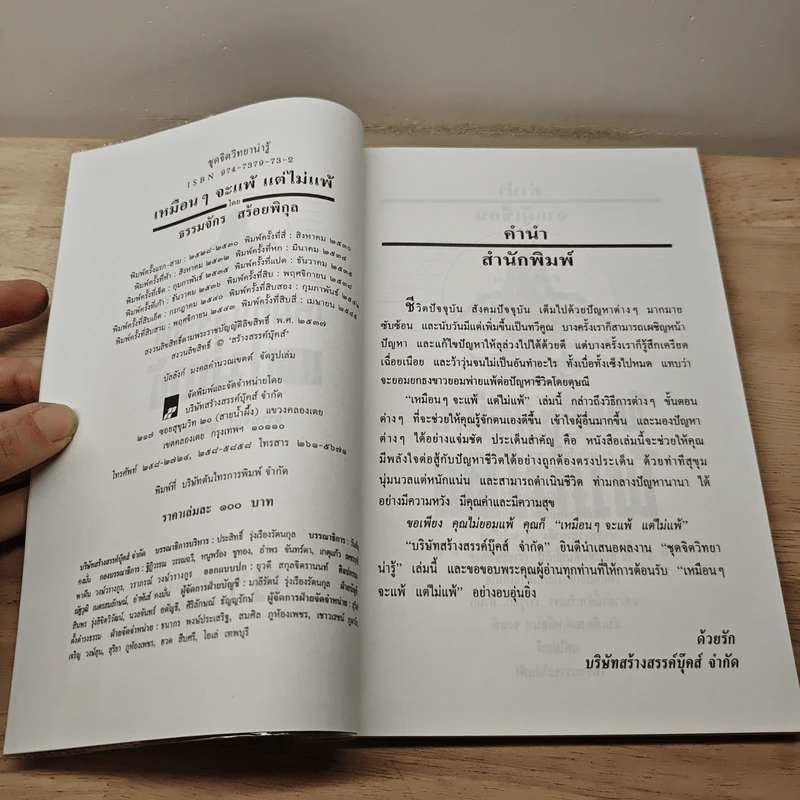 ชุดจิตวิทยาน่ารู้
ISBN 974-7379-73-2
เหมือนๆ จะแพ้ แต่ไม่แพ้
โดย
ธรรมจักร สร้อยพิกุล
พิมพ์ครั้งแรก-สาม : ๒๕๒๘-๒๕๓๐ พิมพ์ครั้งที่สี่ : สิงหาคม ๒๕๓๐
พิมพ์ครั้งที่ห้า : สิงหาคม ๒๕๓๒ พิมพ์ครั้งที่หก : มีนาคม ๒๕๓๔
พิมพ์ครั้งที่เจ็ด : กุมภาพันธ์ ๒๕๓๕ พิมพ์ครั้งที่แปด : ธันวาคม ๒๕๓๕
พิมพ์ครั้งที่เก้า : ธันวาคม ๒๕๓๖ พิมพ์ครั้งที่สิบ : พฤศจิกายน ๒๕๓๘
พิมพ์ครั้งที่สิบเอ็ด : กรกฎาคม ๒๕๔๐ พิมพ์ครั้งที่สิบสอง : กุมภาพันธ์
พิมพ์ครั้งที่สิบสาม : พฤศจิกายน ๒๕๔๓ พิมพ์ครั้งที่สิบสี่ : เมษายน
สงวนลิขสิทธิ์ตามพระราชบัญญัติลิขสิทธิ์ พ.ศ. ๒๕๓๗
สงวนลิขสิทธิ์ © "สร้างสรรค์บุ๊คส์"
บัลลังก์ มงคลคำนวณเขตต์ จัดรูปเล่ม
จัดพิมพ์และจัดจำหน่ายโดย
บริษัทสร้างสรรค์บุ๊คส์ จำกัด
๒๑๗ ซอยสุขุมวิท ๒๐ (สายน้ำผึ้ง) แขวงคลองเตย
เขตคลองเตย กรุงเทพฯ ๑๐๑๑๐
โทรศัพท์ ๒๕๘-๒๗๒๔, ๒๕๘-๕๘๕๘ โทรสาร ๒๖๑-๕๖๗๑
พิมพ์ที่ บริษัทต้นไทรการพิมพ์ จำกัด
ราคาเล่มละ ๑๐๐ บาท
บริษัทสร้างสรรค์บุ๊คส์ จำกัด บรรณาธิการบริหาร : ประสิทธิ์ รุ่งเรืองรัตนกุล บรรณาธิการ :
คงมั่น กองบรรณาธิการ : ฐิติวรรณ วรรณฉวี, หนูพร้อง ชูทอง, อำพร จันทร์ดา, เกตุแก้ว
พาดีน วงษ์วรางกูร, วราภรณ์ วงษ์วรางกูร ออกแบบปก : ยุวดี สกุลจิตรานนท์
ณัฐวุฒิ เนตรสนลักษณ์, อำพันธ์ คงมั่น ผู้จัดการฝ่ายบัญชี : มาลีรัตน์ รุ่งเรืองรัตนกุล
สินพร รุ่งสิริจิตวิวัฒน์, นวลจันทร์ อตัญฐี, ศิริลักษณ์ ธัญญรักษ์ ผู้จัดการฝ่ายจัดจำหน่าย :
ตั้งดำรงธรรม ฝ่ายจัดจำหน่าย : ธนากร พงษ์ประเสริฐ, สมศิล ภูห้องเพชร, เชาวเรขน์
เจริญ วงษ์ลุน, สุริยา ภูห้องเพชร, ธวด สืบศรี, ไอเล่ เทพบุรี
คำนำ
สำนักพิมพ์
ชีวิตปัจจุบัน สังคมปัจจุบัน เต็มไปด้วยปัญหาต่างๆ มากมาย
ซับซ้อน และนับวันมีแต่เพิ่มขึ้นเป็นทวีคูณ บางครั้งเราก็สามารถเผชิญหน้า
ปัญหา และแก้ไขปัญหาให้ลุล่วงไปได้ด้วยดี แต่บางครั้งเราก็รู้สึกเครียด
เฉื่อยเนือย และว้าวุ่นจนไม่เป็นอันทำอะไร ทั้งเบื่อทั้งเซ็งไปหมด แทบว่า
จะยอมยกธงขาวยอมพ่ายแพ้ต่อปัญหาชีวิตโดยดุษณี
"เหมือนๆ จะแพ้ แต่ไม่แพ้" เล่มนี้ กล่าวถึงวิธีการต่างๆ ขั้นตอน
ต่างๆ ที่จะช่วยให้คุณรู้จักตนเองดีขึ้น เข้าใจผู้อื่นมากขึ้น และมองปัญหา
ต่างๆ ได้อย่างแจ่มชัด ประเด็นสำคัญ คือ หนังสือเล่มนี้จะช่วยให้คุณ
มีพลังใจต่อสู้กับปัญหาชีวิตได้อย่างถูกต้องตรงประเด็น ด้วยท่าทีสุขุม
นุ่มนวลแต่หนักแน่น และสามารถดำเนินชีวิต ท่ามกลางปัญหานานา ได้
อย่างมีความหวัง มีคุณค่าและมีความสุข
ขอเพียง คุณไม่ยอมแพ้ คุณก็ "เหมือนๆ จะแพ้ แต่ไม่แพ้"
"บริษัทสร้างสรรค์บุ๊คส์ จำกัด" ยินดีนำเสนอผลงาน "ชุดจิตวิทยา
น่ารู้" เล่มนี้ และขอขอบพระคุณผู้อ่านทุกท่านที่ให้การต้อนรับ "เหมือนๆ
จะแพ้ แต่ไม่แพ้" อย่างอบอุ่นยิ่ง
ด้วยรัก
บริษัทสร้างสรรค์บุ๊คส์ จำกัด